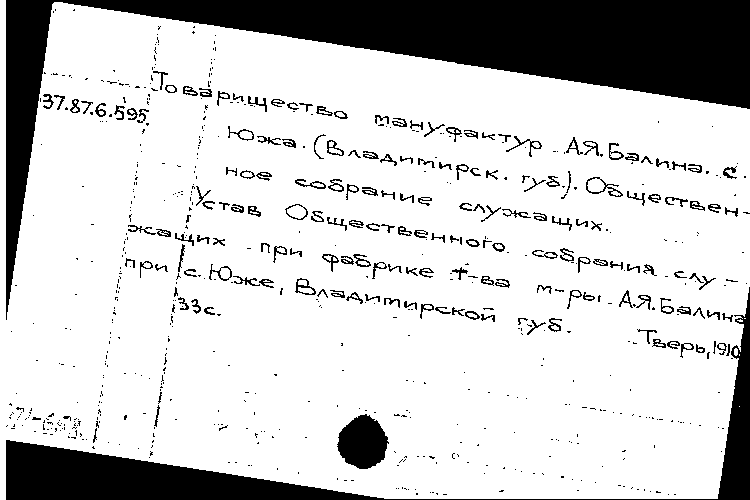 Товарищество мануфактур А.Я.Балина. с.
37.87.6.595.
Южа. (Владимирск. губ.). Обществен-
ное собрание служащих.
Устав Общественного собрания слу-
жащих при фабрике т-ва м-ры А.Я.Балина
при с. Юже, Владимирской губ. Тверь, 1910
33с.